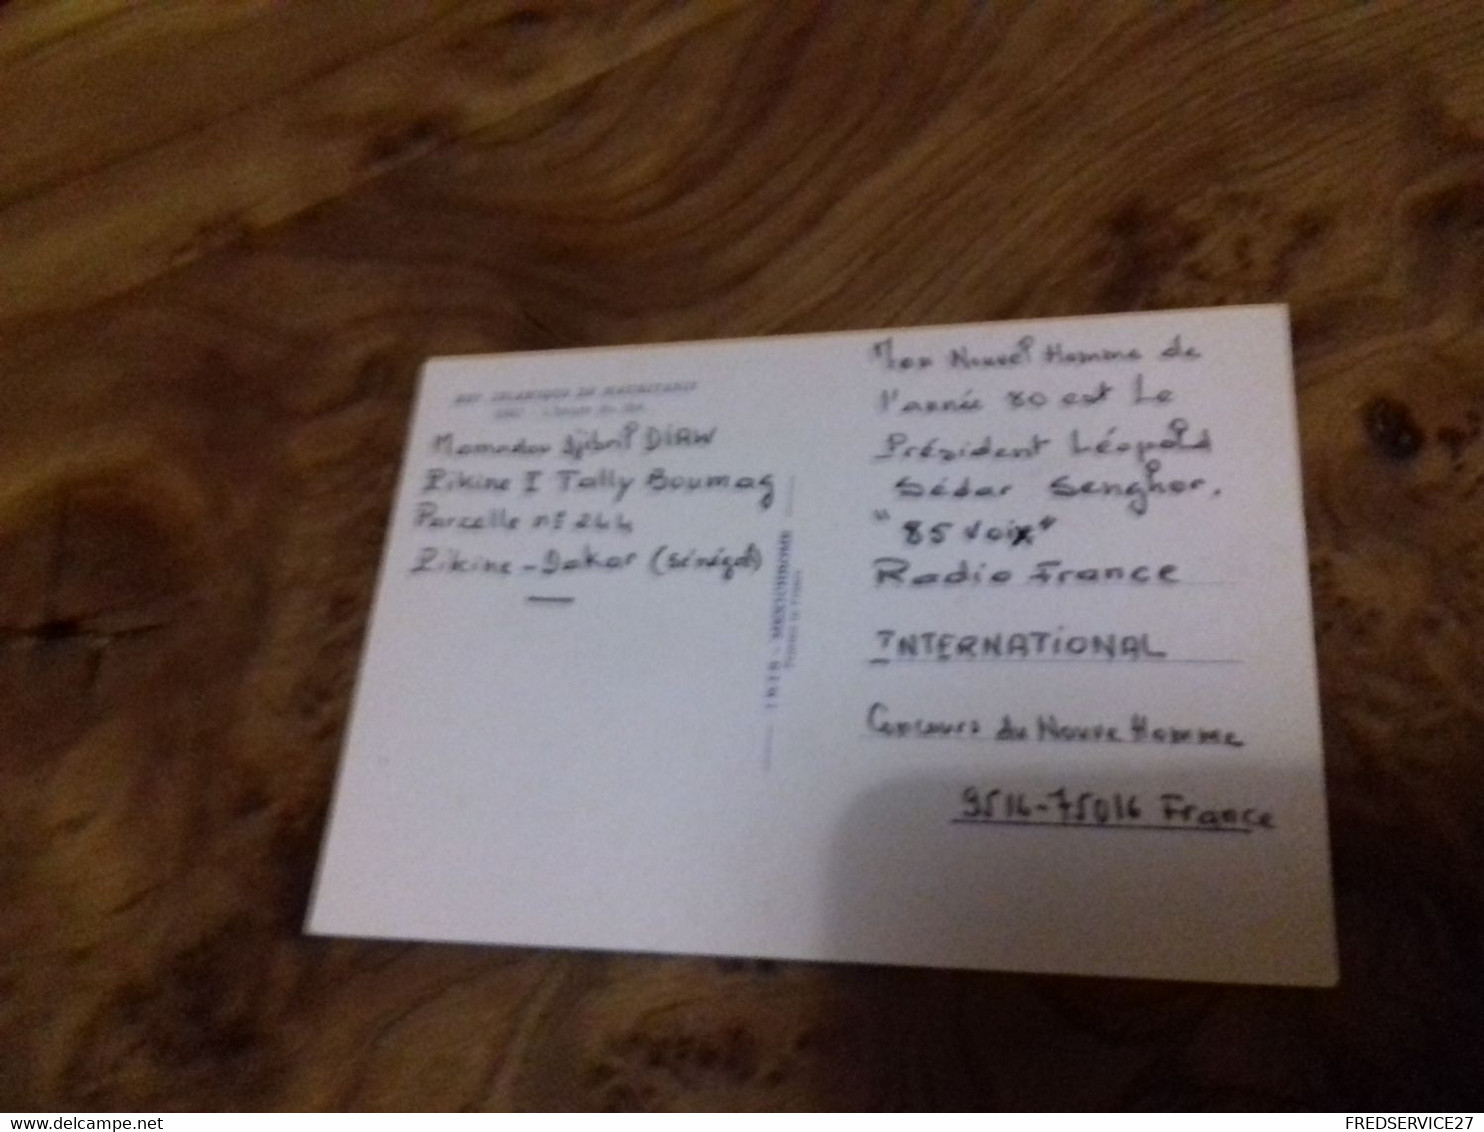 REP. ISLAMIQUE DE MAURITANIE
Mamadou Djibril DIAW
Pikine I Tally Boumag
Parcelle n° 244
Pikine - Dakar (Sénégal)
IRIS - MEXICHROME
Mon Nouvel Homme de
l'année 80 est Le
Président Léopold
Sédar Senghor.
"85 Voix"
Radio France
INTERNATIONAL
Concours du Nouve Homme
9516-75016 France
www.delcampe.net
FREDSERVICE27